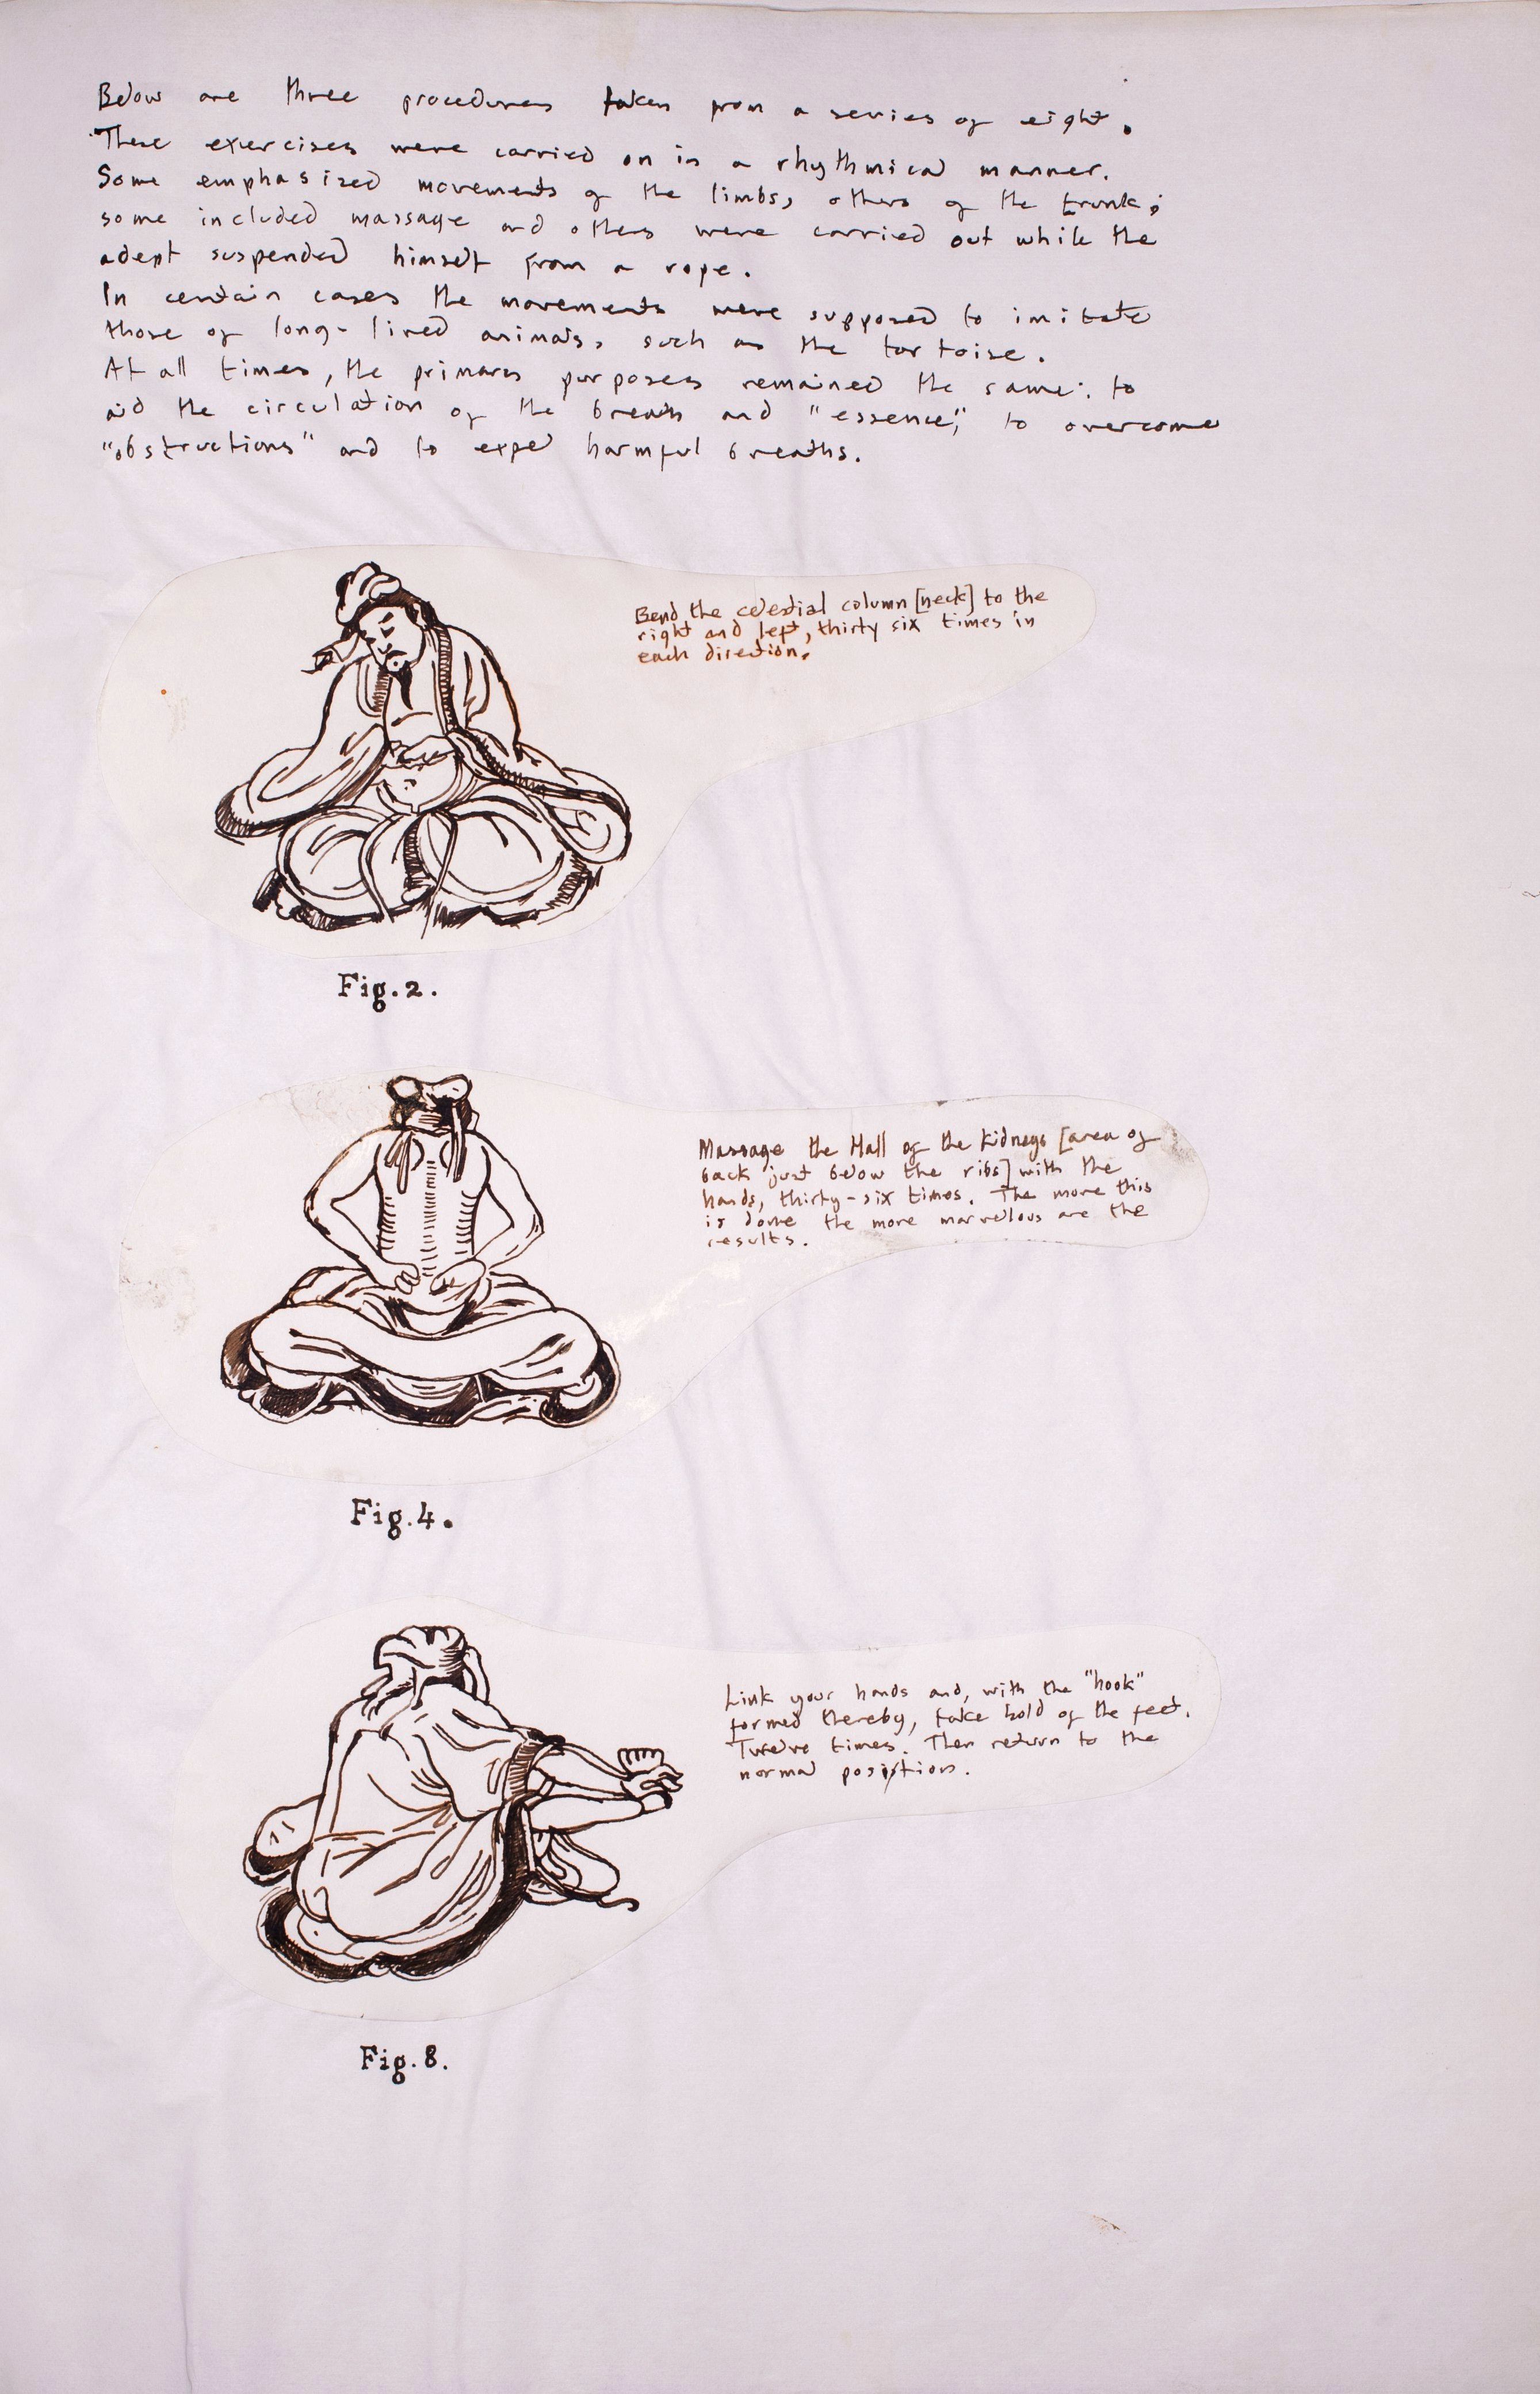 Below are three procedures taken from a series of eight.
These exercises were carried on in a rhythmical manner.
Some emphasized movements of the limbs, others of the trunk;
some included massage and others were carried out while the
adept suspended himself from a rope.
In certain cases the movements were supposed to imitate
those of long-lived animals, such as the tortoise.
At all times, the primary purposes remained the same: to
aid the circulation of the breath and "essence", to overcome
"obstructions" and to expel harmful breaths.
Bend the celestial column [neck] to the
right and left, thirty six times in
each direction.
Fig.2.
Massage the Hall of the Kidneys [area of
back just below the ribs] with the
hands, thirty-six times. The more this
is done the more marvellous are the
results.
Fig.4.
Link your hands and, with the "hook"
formed thereby, take hold of the feet.
Twelve times. Then return to the
normal position.
Fig.8.